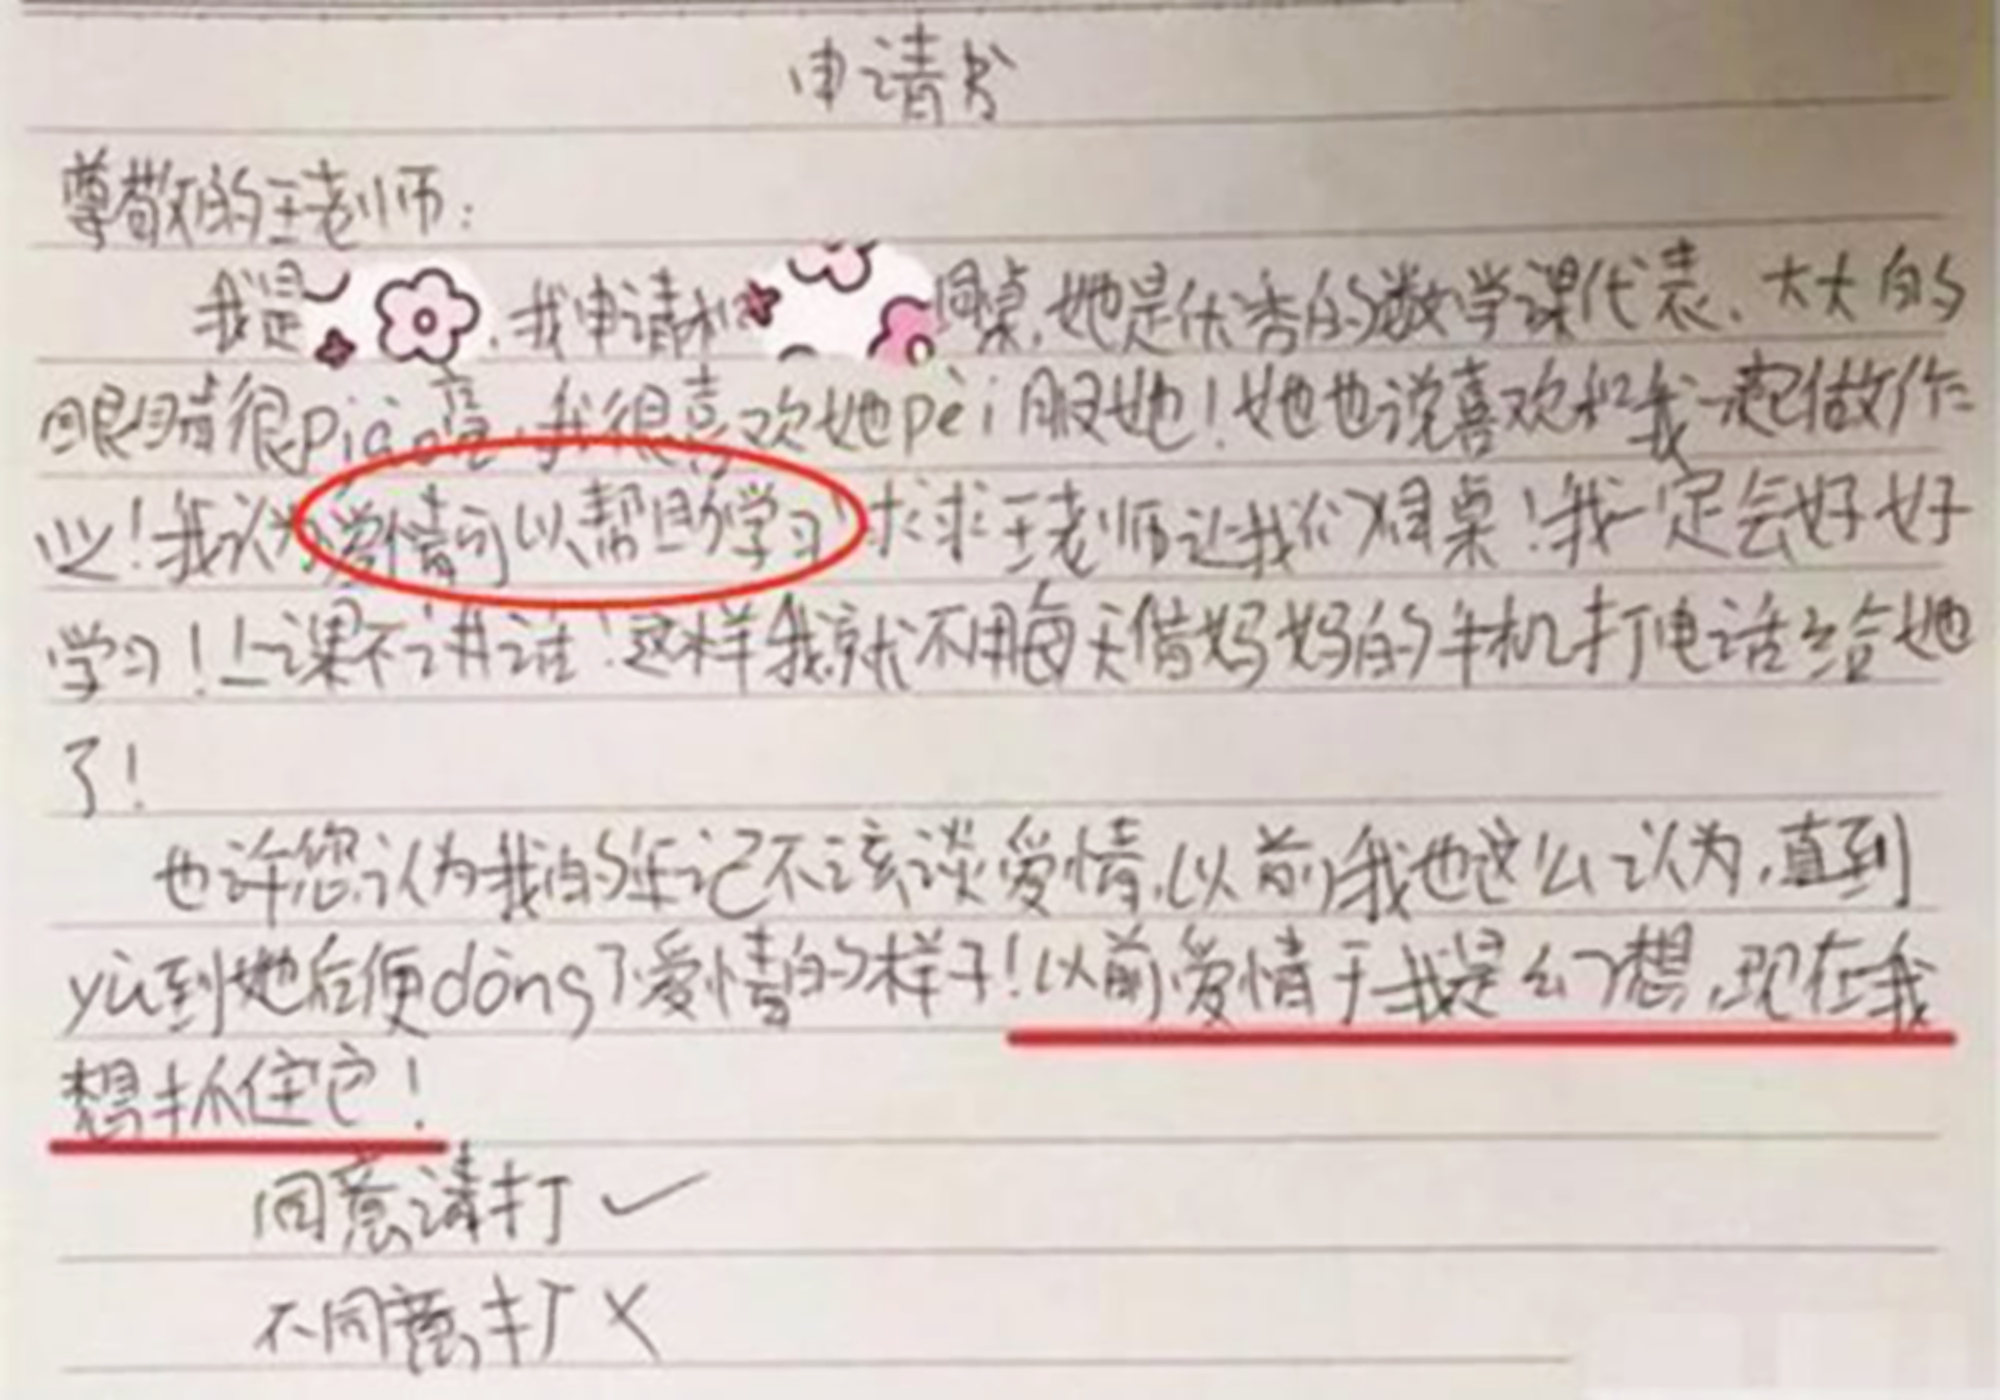 申请书
尊敬的王老师:
我是,我申请和同桌,她是优秀的数学课代表、大大的
眼睛很piào亮,我很喜欢她pèi服她!她也说喜欢和我一起做作
业!我认为爱情可以帮助学习!求求王老师让我们同桌!我一定会好好
学习!上课不讲话!这样我就不用每天借妈妈的手机打电话给她
了!
也许您认为我的年记不该谈爱情,以前我也这么认为,直到
yù到她后便dǒng了爱情的样子!以前爱情于我是幻想,现在我
想抓住它!
同意请打✓
不同意打×